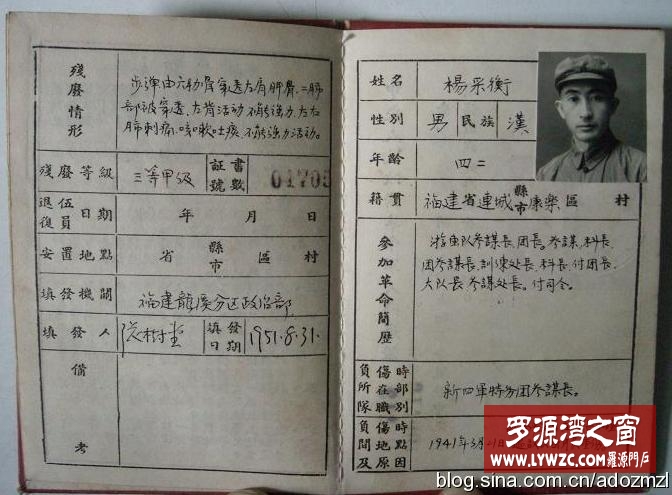 殘廢情形
步弹由六肋骨穿透左肩胛骨.二肺
部被穿透.左背活动不能强力.左右
肺刺痛.咳嗽.吐痰.不能强力活动。
殘廢等級 三等甲級 証書號數
退伍復員日期 年 月 日
安置地點 省 縣市 區 村
填發機關 福建龍溪分区政治部
填發人 填發日期 1951.8.31.
備考
姓名 楊采衡
性別 男 民族 漢
年齡 四二
籍貫 福建省連城縣市康樂區 村
參加革命簡歷
游击队参謀長.团長.参謀.科長.
团参謀長.訓練处長.科長.付团長.
大队長.参謀处長.付司令。
負傷時所在部隊職別 新四軍特务团参謀長。
負傷時間地點及原因 1941年3月21日
罗源湾之窗
WWW.LYWZC.COM 羅源門戶
blog.sina.com.cn/adozmzl